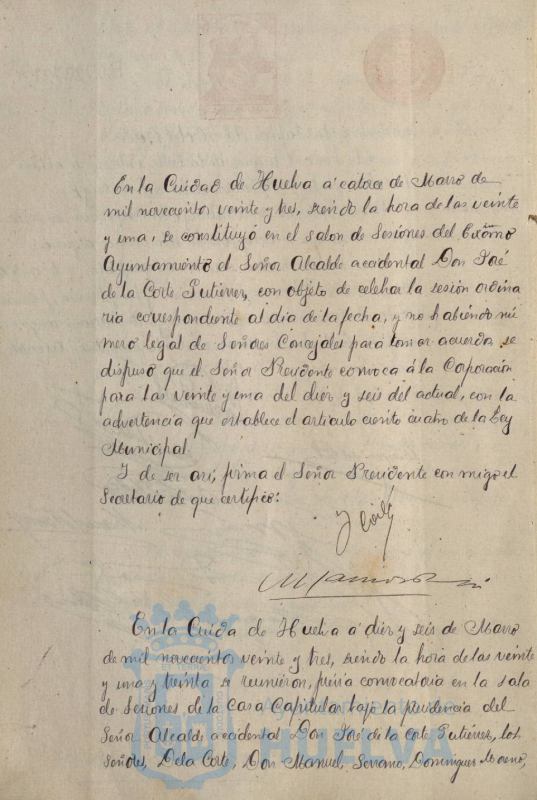 En la Cuidad de Huelva á catorce de Marzo de
mil novecientos veinte y tres, siendo la hora de las veinte
y una, se constituyó en el salon de Sesiones del Excmo
Ayuntamiento el Señor Alcalde accidental Don José
de la Corte Gutiérrez, con objeto de celebrar la sesión ordina
ria correspondiente al dia de la fecha, y no habiendo nú
mero legal de Señores Concejales para tomar acuerdo, se
dispuso que el Señor Presidente convoca á la Corporación
para las veinte y una del diez y seis del actual, con la
advertencia que establece el articulo ciento cuatro de la Ley
Municipal.
Y de ser asi, firma el Señor Presidente con migo el
Secretario de que certifico:
En la Cuida de Huelva á diez y seis de Marzo
de mil novecientos veinte y tres, siendo la hora de las veinte
y una y treinta se reunieron, previa convocatoria en la sala
de Sesiones de la Casa Capitular bajo la presidencia del
Señor Alcalde accidental Don José de la Corte Gutiérrez, los
Señores, De la Corte, Don Manuel, Serrano, Dominguez Moreno,
Ayuntamiento de
HUELVA